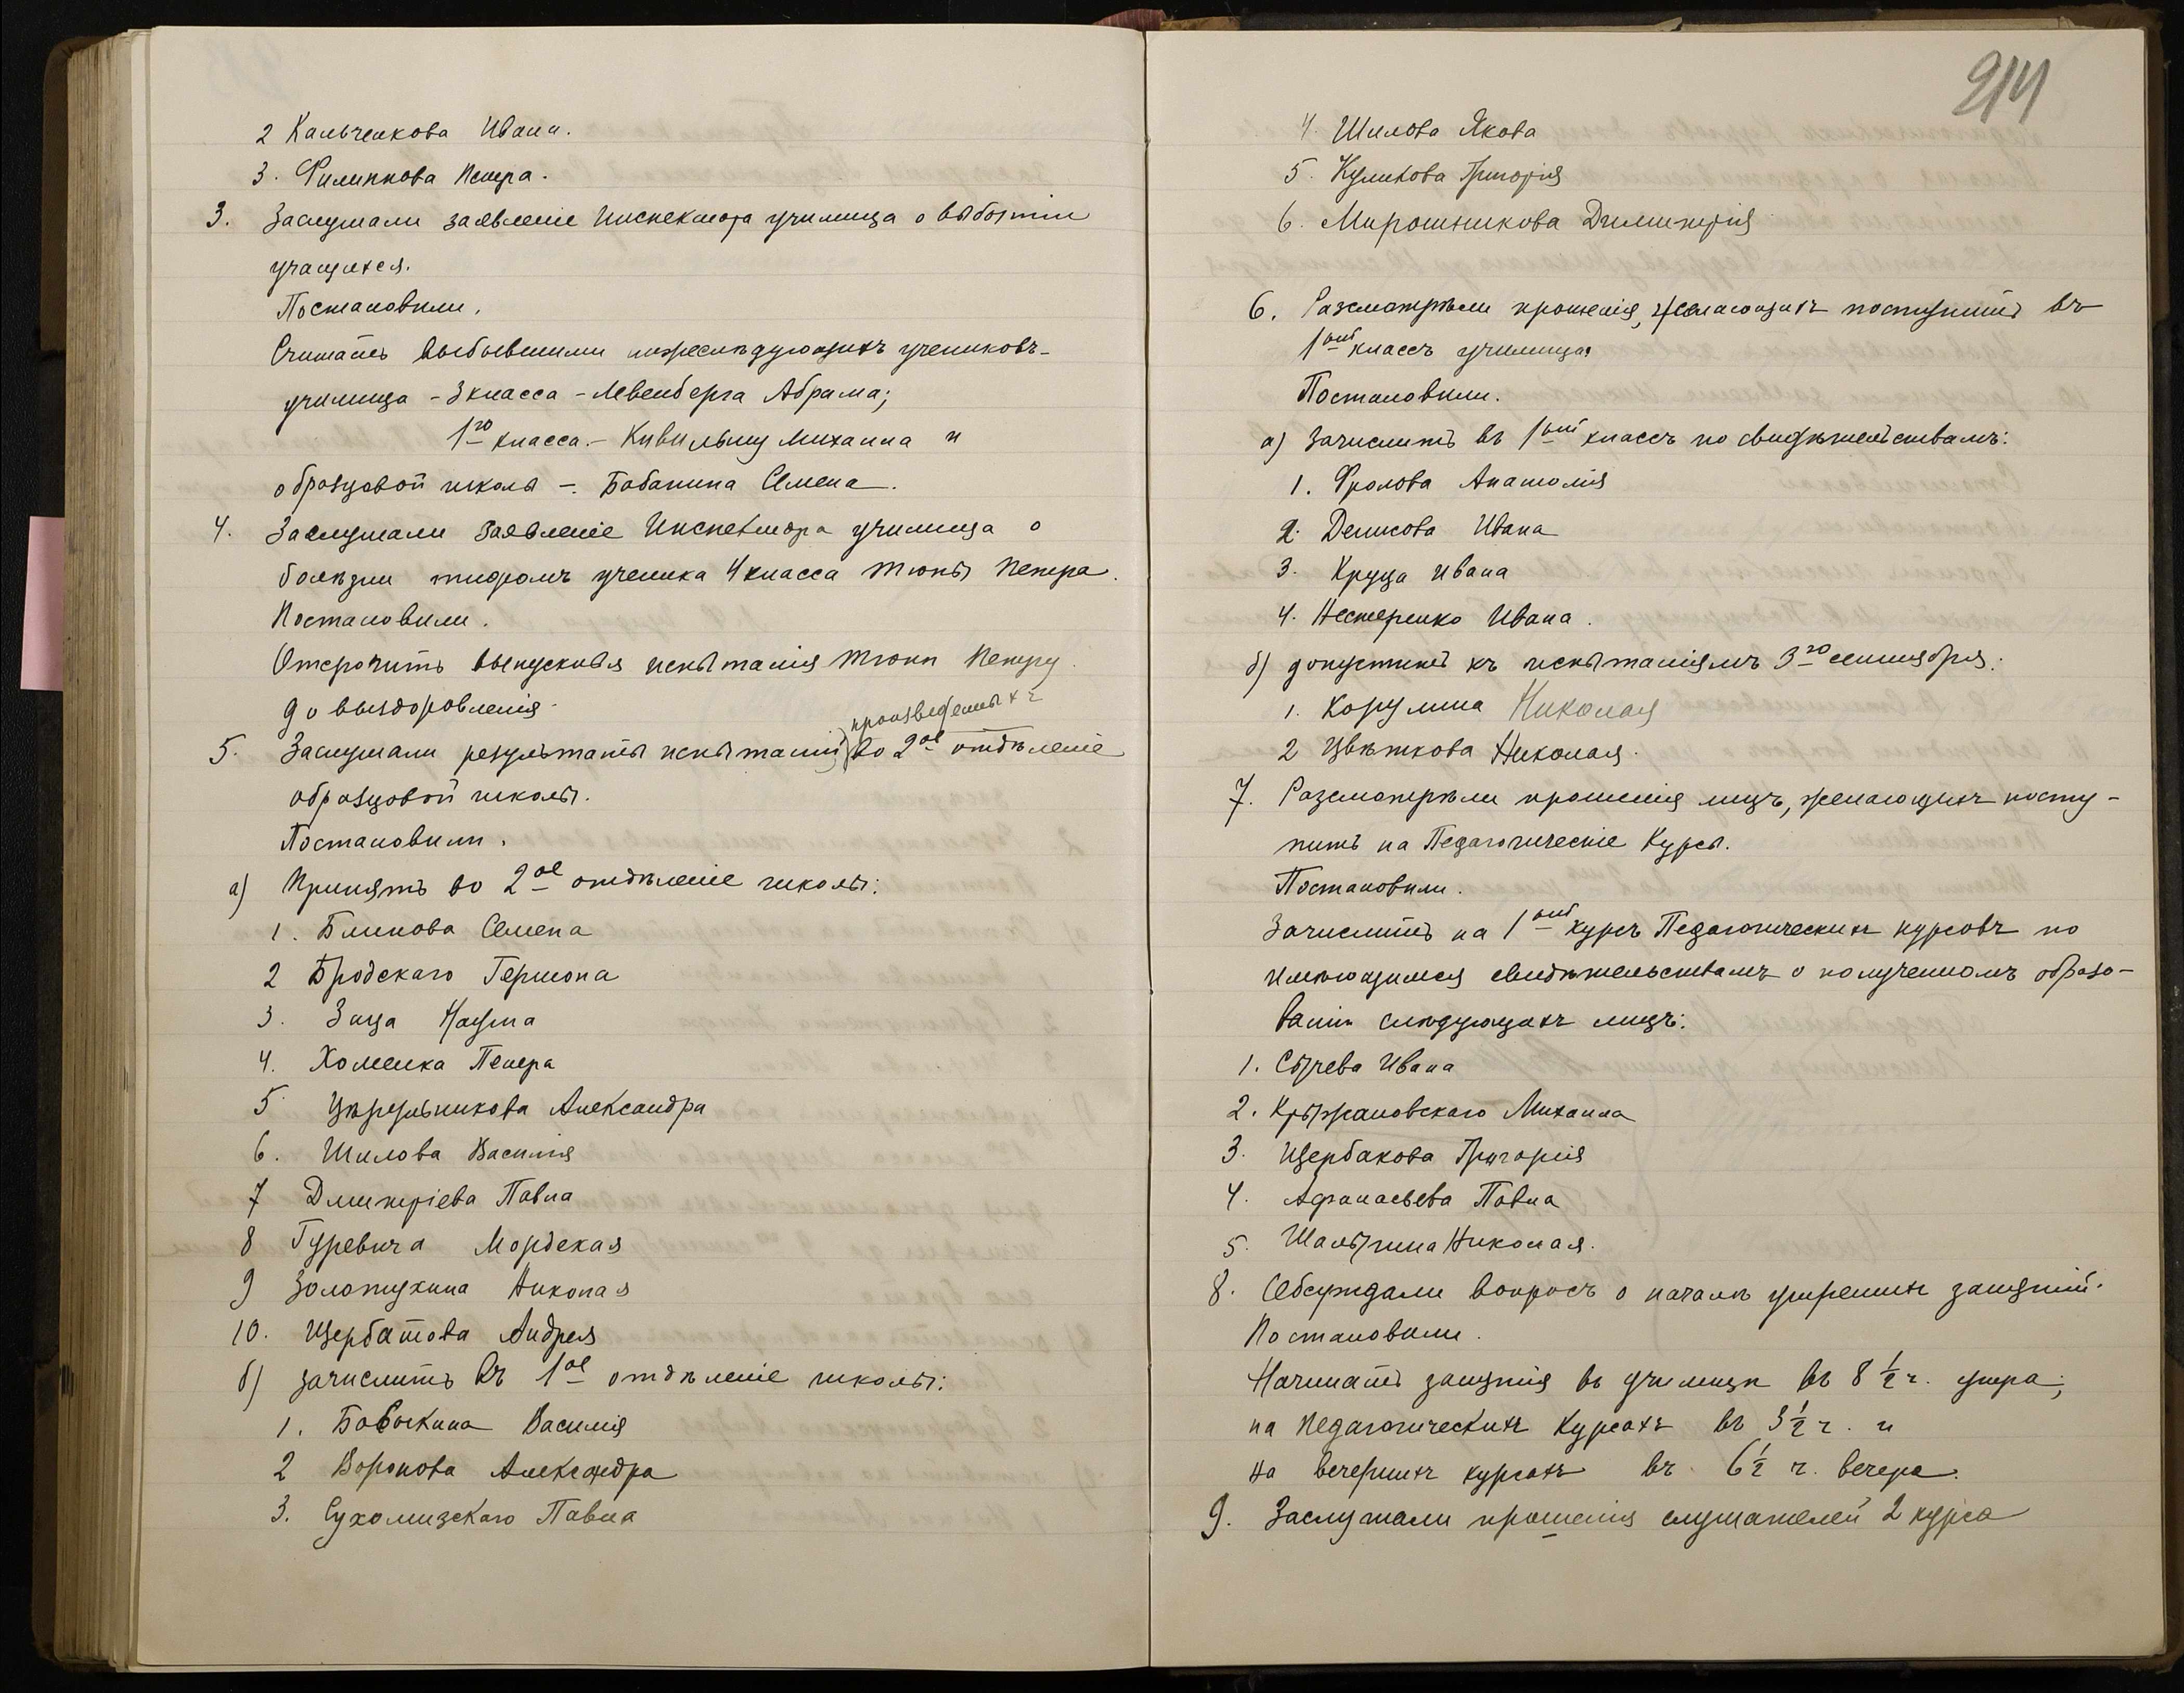 2 Кальченкова Ивана.
3. Филиппова Петра.
3. Заслушали заявленіе Инспектора училища о выбытіи
учащихся.
Постановили.
Считать выбывшими нижеслѣдующихъ учениковъ
училища - 3 класса - Левенберга Абрама;
1го класса. - Кивильшу Михаила и
образцовой школы -. Бабанина Семена.
4. Заслушали заявленіе Инспектора училища о
болѣзни тифомъ ученика 4 класса Тюпы Петра.
Постановили.
Отсрочить выпускныя испытанія Тюпѣ Петру
до выздоровленія.
произведенныхъ
5. Заслушали результаты испытаній во 2ое отдѣленіе
образцовой школы.
Постановили.
а) Принять во 2ое отдѣленіе школы:
1. Блинова Семена
2 Бродскаго Гершона
3. Заца Наума
4. Хоменка Петра
5. Цырульникова Александра
6. Шилова Василія
7 Дмитріева Павла
8 Гуревича Мордехая
9 Золотухина Николая
10. Щербатова Андрея
б) зачислить въ 1ое отдѣленіе школы:
1. Бабыкина Василія
2 Воронова Александра
3. Сухомизскаго Павла
214
4. Шилова Якова
5. Куликова Григорія
6. Мирошникова Димитрія
6. Разсмотрѣли прошенія, желающихъ поступить въ
1ый классъ училища
Постановили.
а) Зачислить въ 1ый классъ по свидѣтельствамъ:
1. Фролова Анатолія
2. Денисова Ивана
3. Круца Ивана
4. Нестеренко Ивана.
б) допустить къ испытаніямъ 3го сентября:
1. Корулина Николая
2 Цвѣткова Николая.
7. Разсмотрѣли прошенія лицъ, желающихъ посту-
пить на Педагогическіе Курсы.
Постановили.
Зачислить на 1ый курсъ Педагогическихъ курсовъ по
имѣющимся свидѣтельствамъ о полученномъ образо-
ваніи слѣдующихъ лицъ:
1. Сычева Ивана
2. Крыжановскаго Михаила
3. Щербакова Григорія
4. Афанасьева Павла
5. Шалыгина Николая.
8. Обсуждали вопросъ о началѣ утреннихъ занятій.
Постановили.
Начинать занятія въ училищѣ въ 8 1/2 ч. утра;
на педагогическихъ Курсахъ въ 3 1/2 ч. и
на вечернихъ курсахъ въ 6 1/2 ч. вечера.
9. Заслушали прошенія слушателей 2 курса